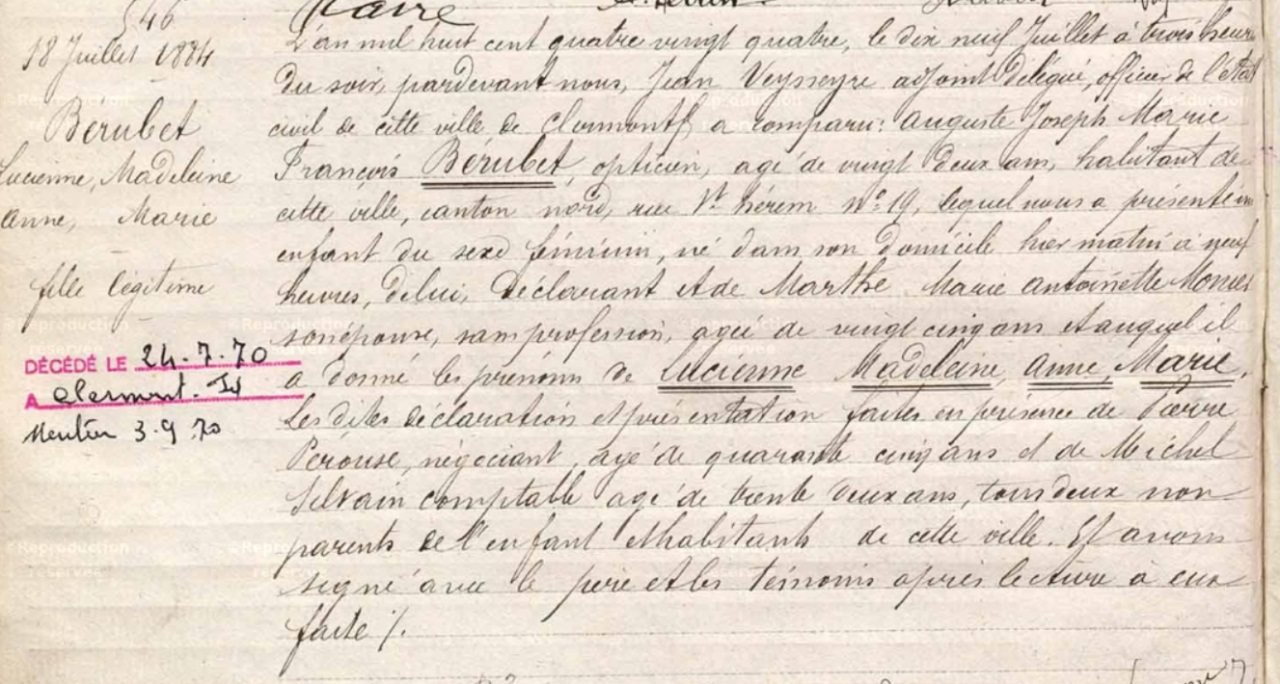 546
18 Juillet 1884
Bérubet
Lucienne, Madeleine
Anne, Marie
fille légitime
DÉCÉDÉ LE 24.7.70
A Clermont.
Mention 3.9.70
L'an mil huit cent quatre vingt quatre, le dix neuf Juillet à trois heures
du soir, pardevant nous, Jean Veysseyre adjoint délégué, officier de l'état
civil de cette ville de Clermontf a comparu: Auguste Joseph Marie
François Bérubet, opticien, agé de vingt deux ans, habitant de
cette ville, canton nord, rue St hérem No 19, lequel nous a présenté un
enfant du sexe féminin, né dans son domicile hier matin à neuf
heures, de lui, déclarant et de Marthe Marie Antoinette
son épouse, sans profession, agée de vingt cinq ans et auquel il
a donné les prénoms de Lucienne Madeleine, Anne, Marie.
Les dites déclaration et présentation faites en présence de Pierre
Pérouse, négociant, agé de quarante cinq ans et de Michel
Selvain comptable agé de trente deux ans, tous deux non
parents de l'enfant et habitants de cette ville. Et avons
signé avec le père et les témoins après lecture à eux
faite /.